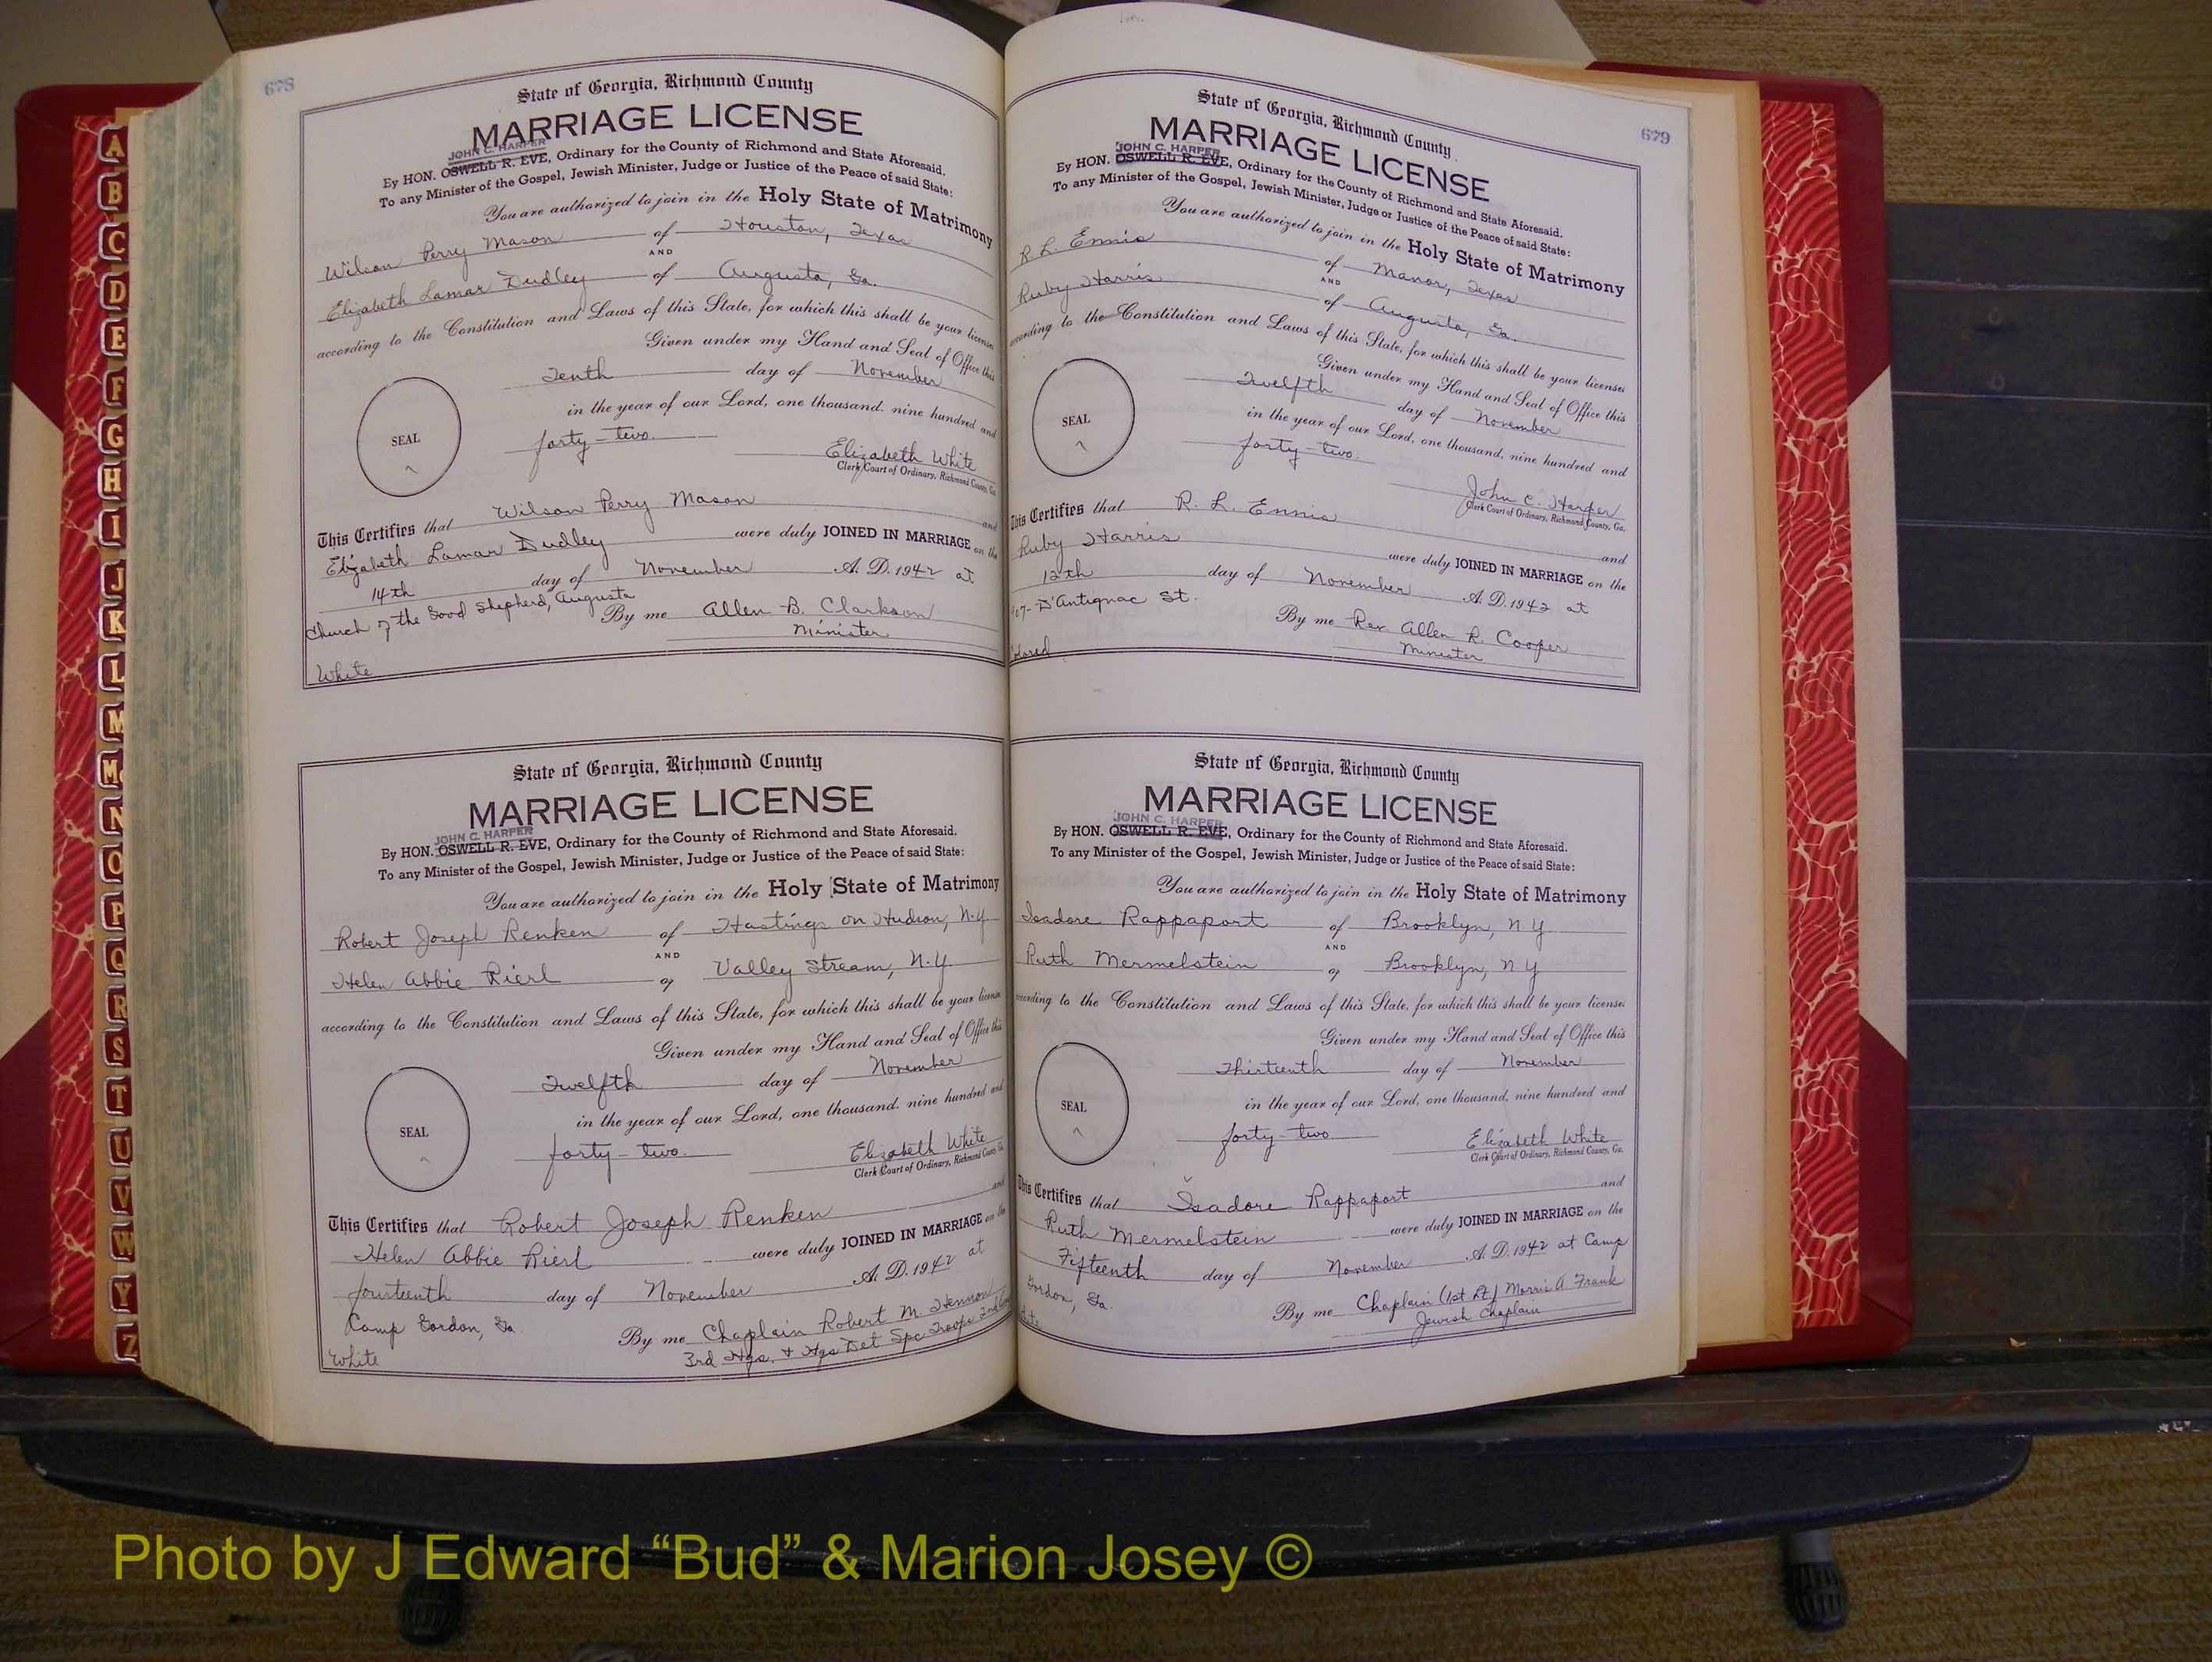 678
State of Georgia, Richmond County
MARRIAGE LICENSE
JOHN C. HARPER
By HON. OSWELL R. EVE, Ordinary for the County of Richmond and State Aforesaid.
To any Minister of the Gospel, Jewish Minister, Judge or Justice of the Peace of said State:
You are authorized to join in the Holy State of Matrimony
Wilson Perry Mason of Houston, Texas
AND
Elizabeth Lamar Dudley of Augusta, Ga.
according to the Constitution and Laws of this State, for which this shall be your license
Given under my Hand and Seal of Office this
Tenth day of November
in the year of our Lord, one thousand, nine hundred and
SEAL
forty-two.
Elizabeth White
Clerk Court of Ordinary, Richmond County, Ga.
This Certifies that Wilson Perry Mason and
Elizabeth Lamar Dudley were duly JOINED IN MARRIAGE on the
14th day of November A. D. 1942 at
Church of the Good Shepherd, Augusta By me Allen B. Clarkson
Minister
White
State of Georgia, Richmond County
MARRIAGE LICENSE
JOHN C. HARPER
By HON. OSWELL R. EVE, Ordinary for the County of Richmond and State Aforesaid.
To any Minister of the Gospel, Jewish Minister, Judge or Justice of the Peace of said State:
You are authorized to join in the Holy State of Matrimony
Robert Joseph Renken of Hastings on Hudson, N.Y.
AND
Helen Abbie Rierl of Valley Stream, N.Y.
according to the Constitution and Laws of this State, for which this shall be your license
Given under my Hand and Seal of Office this
Twelfth day of November
in the year of our Lord, one thousand, nine hundred and
SEAL
forty-two.
Elizabeth White
Clerk Court of Ordinary, Richmond County, Ga.
This Certifies that Robert Joseph Renken and
Helen Abbie Rierl were duly JOINED IN MARRIAGE on the
fourteenth day of November A. D. 1942 at
Camp Gordon, Ga By me Chaplain Robert M. Hennon
3rd Hqs. & Hqs Det Spc Troops 2nd
White
679
State of Georgia, Richmond County
MARRIAGE LICENSE
JOHN C. HARPER
By HON. OSWELL R. EVE, Ordinary for the County of Richmond and State Aforesaid.
To any Minister of the Gospel, Jewish Minister, Judge or Justice of the Peace of said State:
You are authorized to join in the Holy State of Matrimony
R. L. Ennis of Manor, Texas
AND
Ruby Harris of Augusta, Ga.
according to the Constitution and Laws of this State, for which this shall be your license
Given under my Hand and Seal of Office this
Twelfth day of November
in the year of our Lord, one thousand, nine hundred and
SEAL
forty-two.
John C. Harper
Clerk Court of Ordinary, Richmond County, Ga.
This Certifies that R. L. Ennis and
Ruby Harris were duly JOINED IN MARRIAGE on the
12th day of November A. D. 1942 at
D'Antignac St. By me Rev Allen R. Cooper
Minister
Colored
State of Georgia, Richmond County
MARRIAGE LICENSE
JOHN C. HARPER
By HON. OSWELL R. EVE, Ordinary for the County of Richmond and State Aforesaid.
To any Minister of the Gospel, Jewish Minister, Judge or Justice of the Peace of said State:
You are authorized to join in the Holy State of Matrimony
Isadore Rappaport of Brooklyn, N Y
AND
Ruth Mermelstein of Brooklyn, N Y
according to the Constitution and Laws of this State, for which this shall be your license
Given under my Hand and Seal of Office this
Thirteenth day of November
in the year of our Lord, one thousand, nine hundred and
SEAL
forty-two
Elizabeth White
Clerk Court of Ordinary, Richmond County, Ga.
This Certifies that Isadore Rappaport and
Ruth Mermelstein were duly JOINED IN MARRIAGE on the
Fifteenth day of November A. D. 1942 at Camp
Gordon, Ga. By me Chaplain (1st Lt) Morris A. Frank
Jewish Chaplain
A
B
C
D
E
F
G
H
I
J
K
L
M
Mc
N
O
P
Q
R
S
T
U
V
W
Y
Z
Photo by J Edward “Bud” & Marion Josey ©